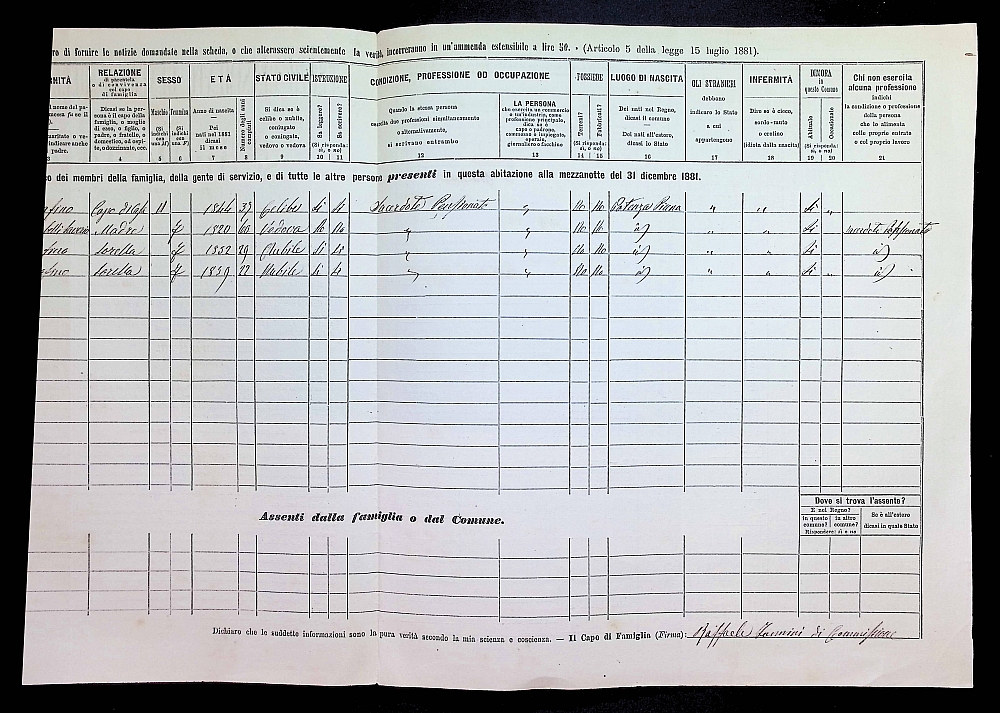 ro di fornire le notizie domandate nella scheda, o che alterassero scientemente la verità, incorreranno in un'ammenda estensibile a lire 50. - (Articolo 5 della legge 15 luglio 1881).
RNITÀ
RELAZIONE
di parentela
o di convivenza
col capo
di famiglia
SESSO
ETÀ
STATO CIVILE
ISTRUZIONE
CONDIZIONE, PROFESSIONE OD OCCUPAZIONE
POSSIEDE
LUOGO DI NASCITA
GLI STRANIERI
INFERMITÀ
DIMORA
in questo Comune
Chi non esercita
alcuna professione
Dicasi se la per-
sona è il capo della
famiglia, o moglie
di esso, o figlio, o
padre, o fratello, o
domestico, od ospi-
te, od ozzinante, ecc.
Maschio
(Si
indichi
con M)
Femmina
(Si
indichi
con F)
Anno di nascita
—
Pei
nati nel 1881
dicasi
il mese
Numero degli anni
compiuti
Si dica se è
celibe o nubile,
conjugato
o conjugata,
vedovo o vedova
Sa leggere?
Sa scrivere?
(Si risponda:
sì, o no)
Quando la stessa persona
esercita due professioni simultaneamente
o alternativamente,
si scrivano entrambe
LA PERSONA
che esercita un commercio
o un'industria, come
professione principale,
dica se è
capo o padrone,
commesso o impiegato,
operaio,
giornaliero o facchino
Terreni?
Fabbricati?
(Si risponda:
sì, o no)
Dei nati nel Regno,
dicasi il comune
—
Dei nati all'estero,
dicasi lo Stato
debbono
indicare lo Stato
a cui
appartengono
Dire se è cieco,
sordo-muto
o cretino
(idiota dalla nascita)
Abituale
Occasionale
(Si risponda:
sì, o no)
indichi
la condizione o professione
della persona
che lo alimenta
colle proprie entrate
o col proprio lavoro
3 4 5 6 7 8 9 10 11 12 13 14 15 16 17 18 19 20 21
co dei membri della famiglia, della gente di servizio, e di tutte le altre persone presenti in questa abitazione alla mezzanotte del 31 dicembre 1881.
Capo di Cas 1844 37 Celibe si si Sacerdote Pensionato " No No Potenza Picena " " Si "
Madre f 1820 60 Vedova No No " " No No id " " Si
sorella f 1852 29 Nubile si si " " No No id " " Si " id
sorella f 1859 22 Nubile si si " " No No id " " Si " id
Assenti dalla famiglia o dal Comune.
Dove si trova l'assente?
E nel Regno?
in questo
comune?
in altro
comune?
Rispondere: sì o no
Se è all'estero
dicasi in quale Stato
Dichiaro che le suddette informazioni sono la pura verità secondo la mia scienza e coscienza. — Il Capo di Famiglia (Firma): Raffaele di Commissione